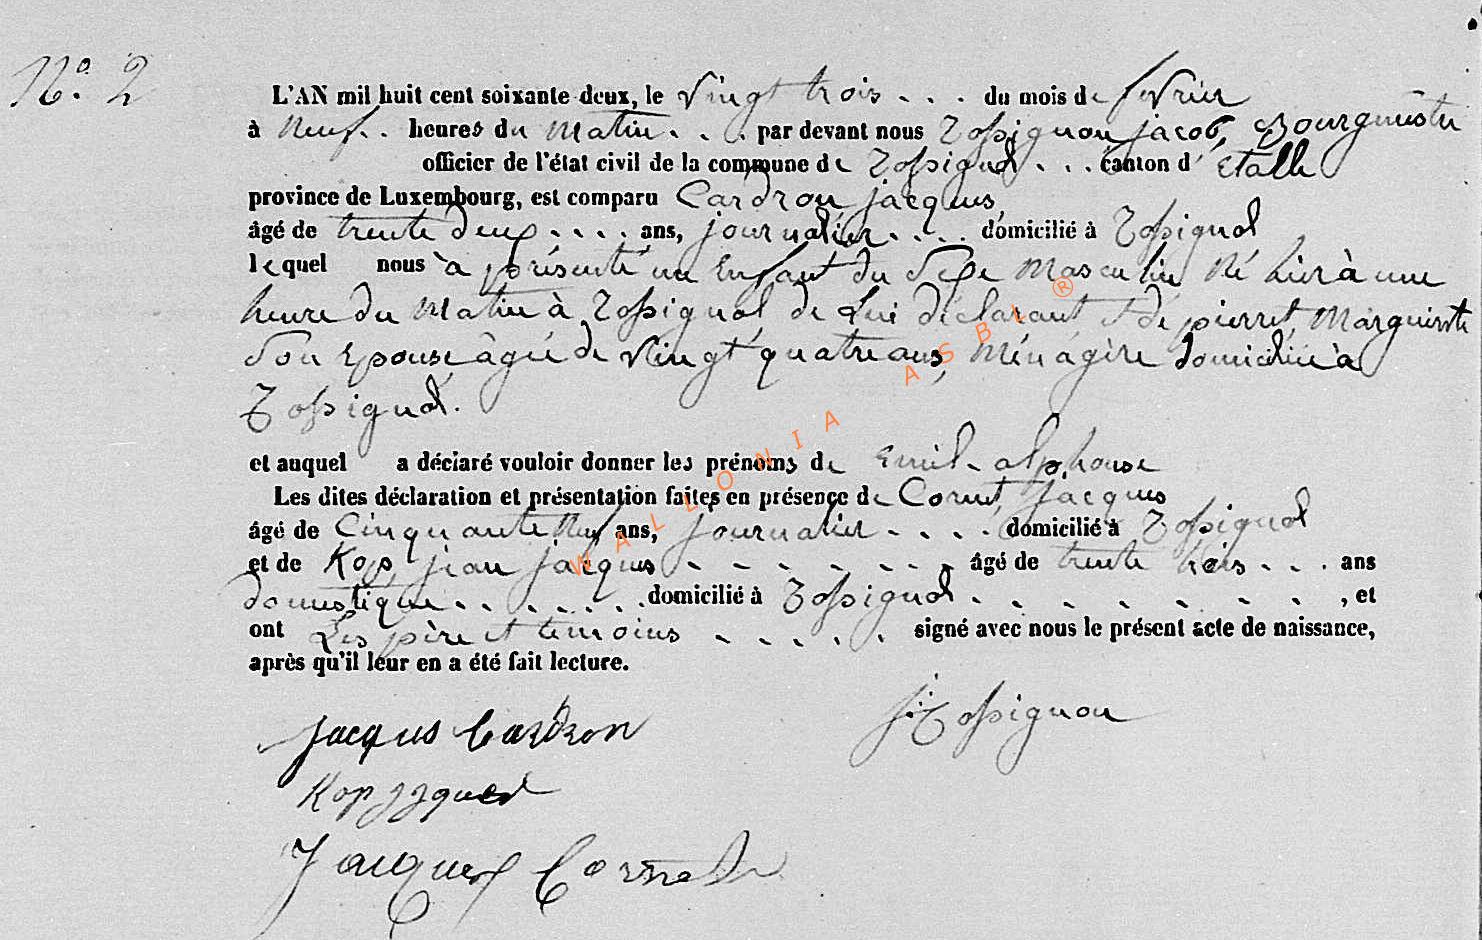 N°. 2
L'AN mil huit cent soixante deux, le vingt trois . . . du mois de fevrier
à neuf . . heures du matin . . . par devant nous Rossignon jacob, Bourgmestre
officier de l'état civil de la commune de Rossignol . . . canton d' Etalle
province de Luxembourg, est comparu Cardron jacques,
âgé de trente deux . . . . ans, journalier . . . . domicilié à Rossignol
lequel nous a présenté un Enfant du sexe Masculin Né hier à une
heure du Matin à Rossignol de Lui déclarant et de pierret, Marguerite
son Epouse âgée de vingt quatre ans, Ménagère domiciliée à
Rossignol.
et auquel a déclaré vouloir donner les prénoms de Emil - alphonse
Les dites déclaration et présentation faites en présence de Cornet, Jacques
âgé de Cinquante neuf ans, journalier - . . . domicilié à Rossignol
et de Kop, jean jacques - - - - - - - - âgé de trente trois . . . ans
domestique . . . . . . . domicilié à Rossignol . - - - - - - - , et
ont Les père et temoins - - - - - signé avec nous le présent acte de naissance,
après qu'il leur en a été fait lecture.
J: Rossignon
Jacques Cardron
Kop jjques
Jacques Cornet
WALLONIA ASBL ®